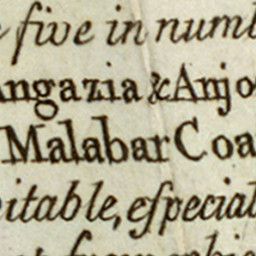 five in numb
ngazia & Anjo
Malabar Coa
itable, eſpecial